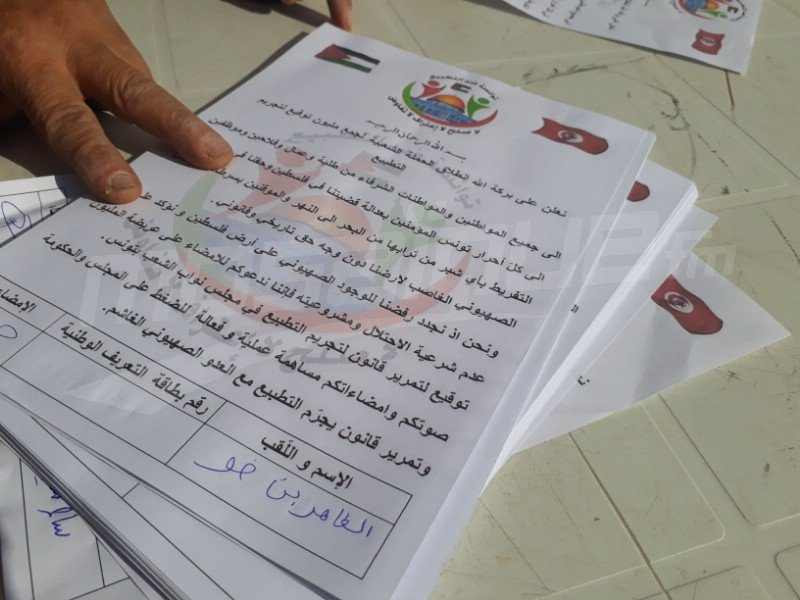 لا صلح لا إعتراف لا تفاوض
بسم الله الرحمان الرحيم
نعلن على بركة الله انطلاق الحملة الشعبية لجمع مليون توقيع لتجريم
التطبيع
الى جميع المواطنين والمواطنات الشرفاء من طلبة وعمال وفلاحين وموظفين
الى كل أحرار تونس المؤمنين بعدالة قضيتنا في فلسطين وحقنا في
التفريط بأي شبر من ترابها من البحر الى النهر والموقنين
الصهيوني الغاصب لارضنا دون وجه حق تاريخي وقانوني.
ونحن اذ نجدد رفضنا للوجود الصهيوني على أرض فلسطين و نؤكد
عدم شرعية الاحتلال ومشروعيته فإننا ندعوكم للامضاء على عريضة المليون
توقيع لتمرير قانون لتجريم التطبيع في مجلس نواب الشعب بتونس.
صوتكم وامضاءاتكم مساهمة عملية و فعالة للضغط على المجلس والحكومة
وتمرير قانون يجرّم التطبيع مع العدو الصهيوني الغاشم.
الإسم و اللقب
رقم بطاقة التعريف الوطنية
الإمضاء
الطاهر بن